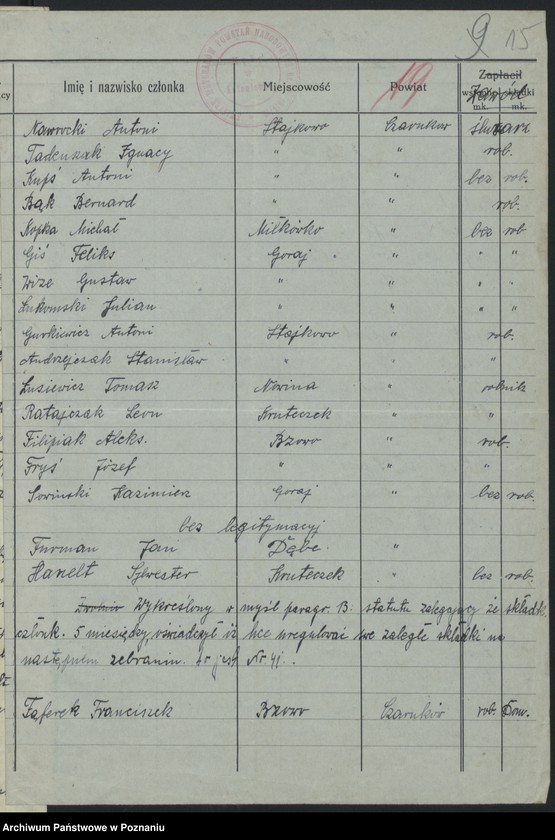 9 15
Imię i nazwisko członka Miejscowość Powiat Zapłacił
19 Zawód
mk. mk.
Nawrocki Antoni Stajkowo Czarnków ślusarz
Tadeuszak Ignacy " " rob.
Kujś Antoni " " bez rob.
Bąk Bernard " " rob.
Kopka Michał Miłkówko " bez rob
Giś Feliks Goraj " " "
Wize Gustaw " " " "
Łukomski Julian " " " "
Gurkiewicz Antoni Stajkowo " rob.
Andrzejczak Stanisław " " "
Łusiewicz Tomasz Nowina " rolnik
Ratajczak Leon Kruteczek " "
Filipiak Aleks. Bzowo " rob.
Fryś Józef " " "
Sowiński Kazimierz Goraj " bez rob.
bez legitymacyj
Furman Jan Dębe "
Hanelt Sylwester Kruteczek " bez rob.
Wykreślony w myśl paragr. 13. statutu zalegający ze składk.
członk. 5 miesięcy, oświadczył iż chce uregulować swe zaległe składki na
następnem zebraniu. Nr. 41.
Taferek Franciszek Bzowo Czarnków rob. Dom.
Archiwum Państwowe w Poznaniu